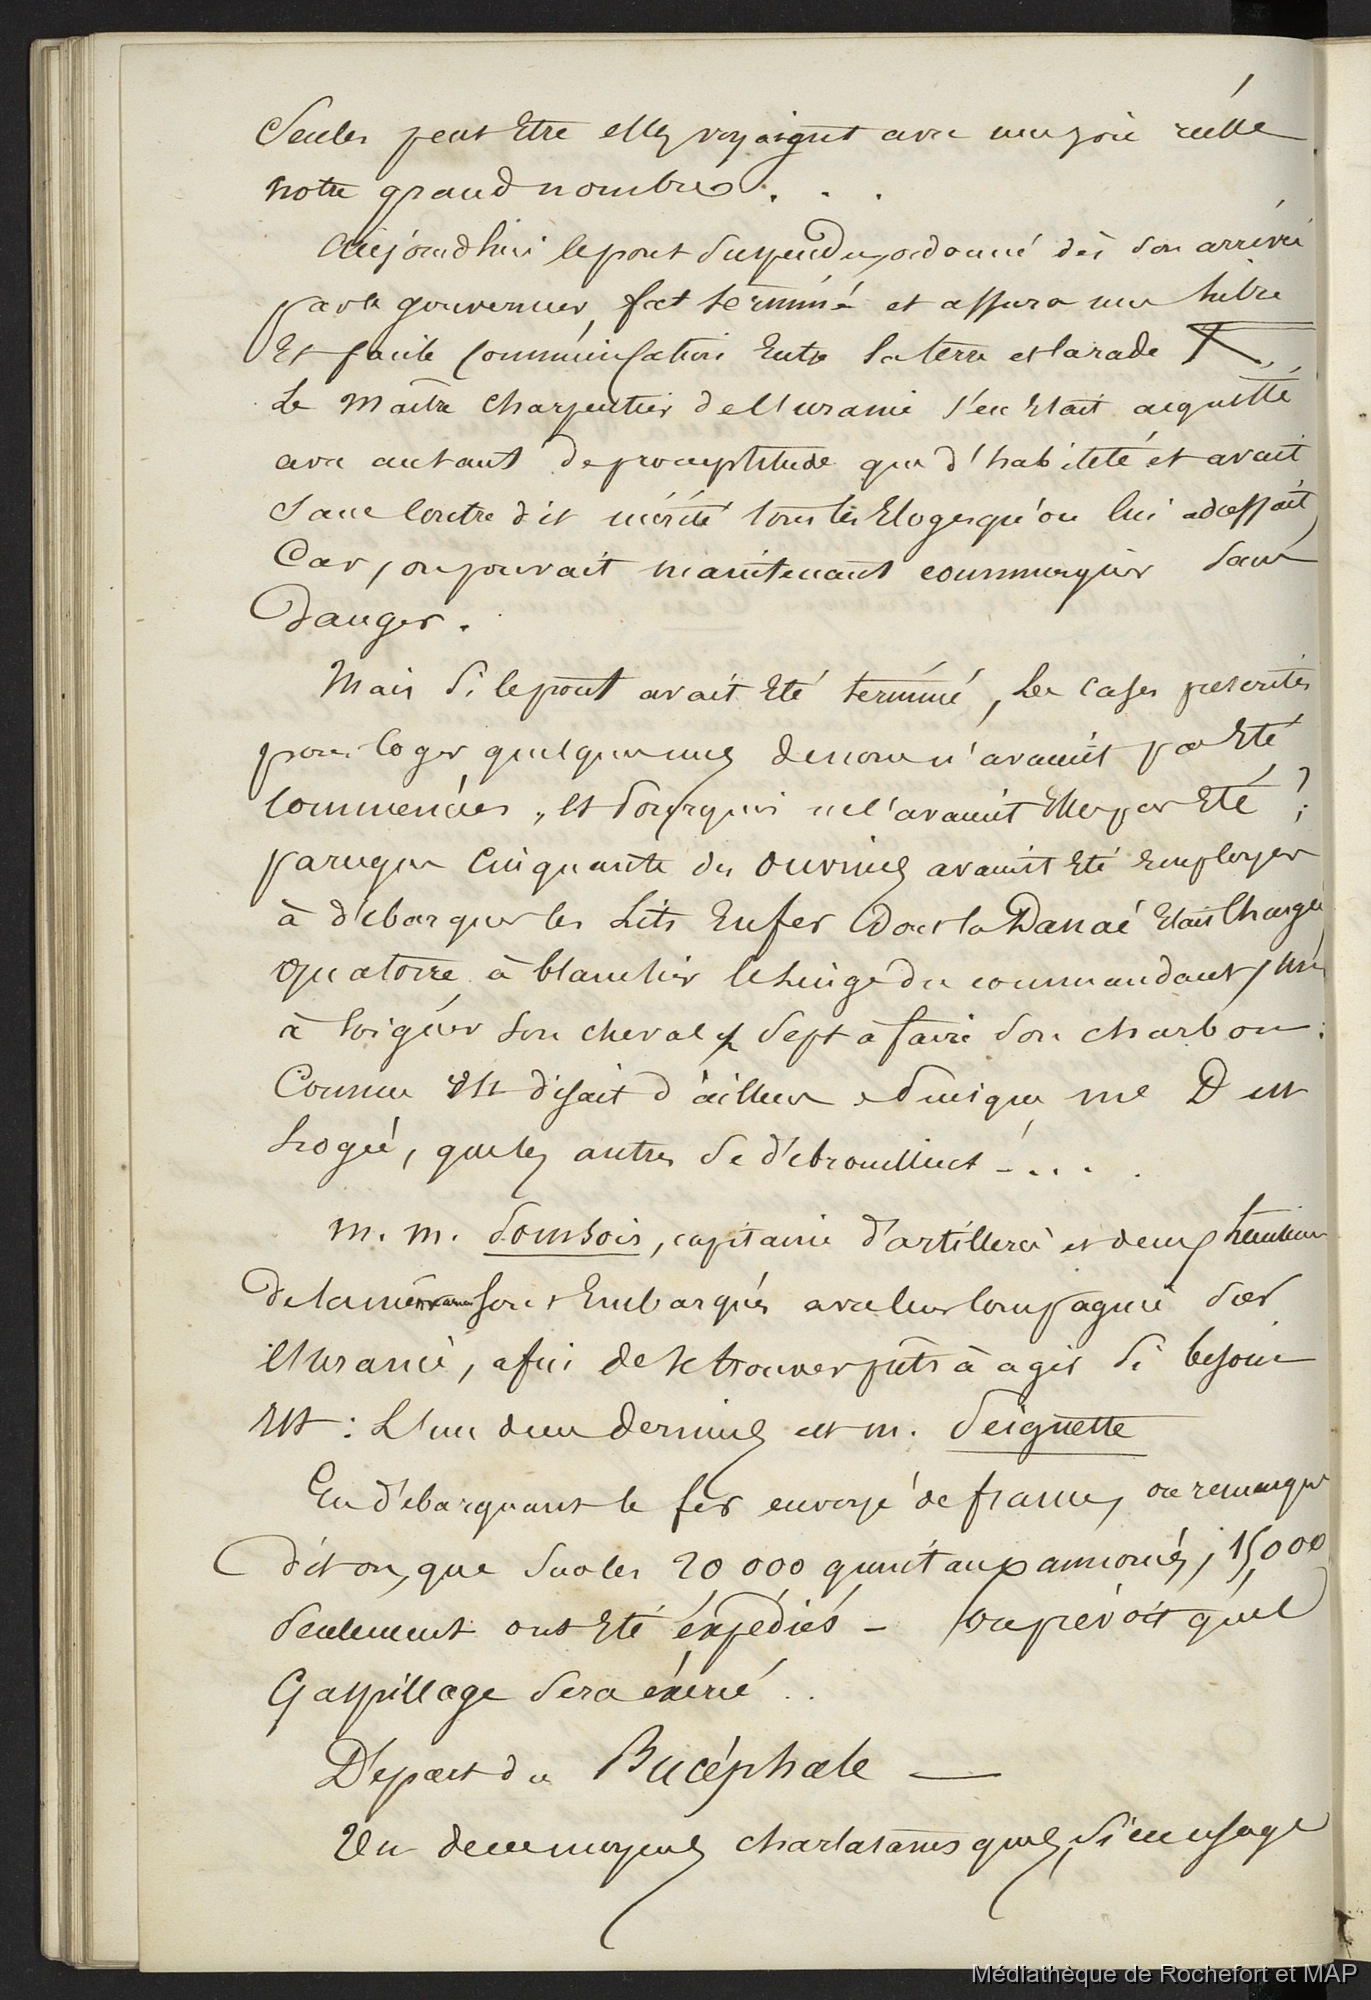 Seules peut Etre elles voyaient avec une joie réelle
notre grand nombre . . .
Aujourd'hui le pont Suspendu, ordonné dès son arrivée
par le gouverneur, fut terminé et assura une libre
Et facile communication Entre la terre et la rade
Le Maitre charpentier de l'uranie s'en Etait acquitté
avec autant de promptitude que d'habileté et avait
Sans Contre dit mérité tous les Eloges qu'on lui adressait,
Car, on pouvait maintenant communiquer Sans
Danger.
Mais Si le pont avait Eté terminé, Les cases prescrites
pour loger quelques uns de nous n'avaient pas Eté
Commencées, Et pourquoi ne l'avaient Elles pas Eté ?
parceque Cinquante des ouvriers avaient Eté Employés
à débarquer les Lits En fer Dont la Danaé Etait Chargée
quatorze à blanchir le Linge du commandant, un
à soigner Son cheval, Sept à faire Son charbon :
Comme Il disait d'ailleurs, puisque me D est
Logée, que les autres Se débrouillent - . . . .
m. m. Sourbois, capitaine d'artillerie et deux Lieutenans
De la même arme sont Embarqués avec leur Compagnie Sur
l'Uranie, afin de Se trouver prêts à agir Si besoin
Est : L'un deces derniers est m. Seignette
En débarquant le fer envoyé de france, on remarque
dit on, que Sur les 20 000 quintaux annoncés, 15,000
Seulement ont Eté expédiés - On prévoit quel
Gaspillage Sera éxercé . .
Départ du Bucéphale —
Un des moyens charlatanesques, Si en usage
Médiathèque de Rochefort et MAP